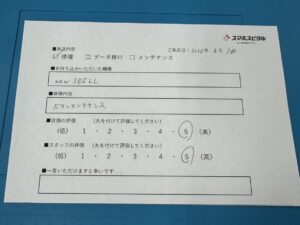 スマホスピタル
■来店内容 ご来店日：2025年 6月 7日
☑ 修理 □ データ移行 □ メンテナンス
■お持ち込みいただいた機種
new 3DSLL
■修理内容
メンテナンス
■店舗の評価 (丸を付けて評価してください)
(低) 1 ・ 2 ・ 3 ・ 4 ・ 5 (高)
■スタッフの評価 (丸を付けて評価してください)
(低) 1 ・ 2 ・ 3 ・ 4 ・ 5 (高)
■一言いただけますと幸いです